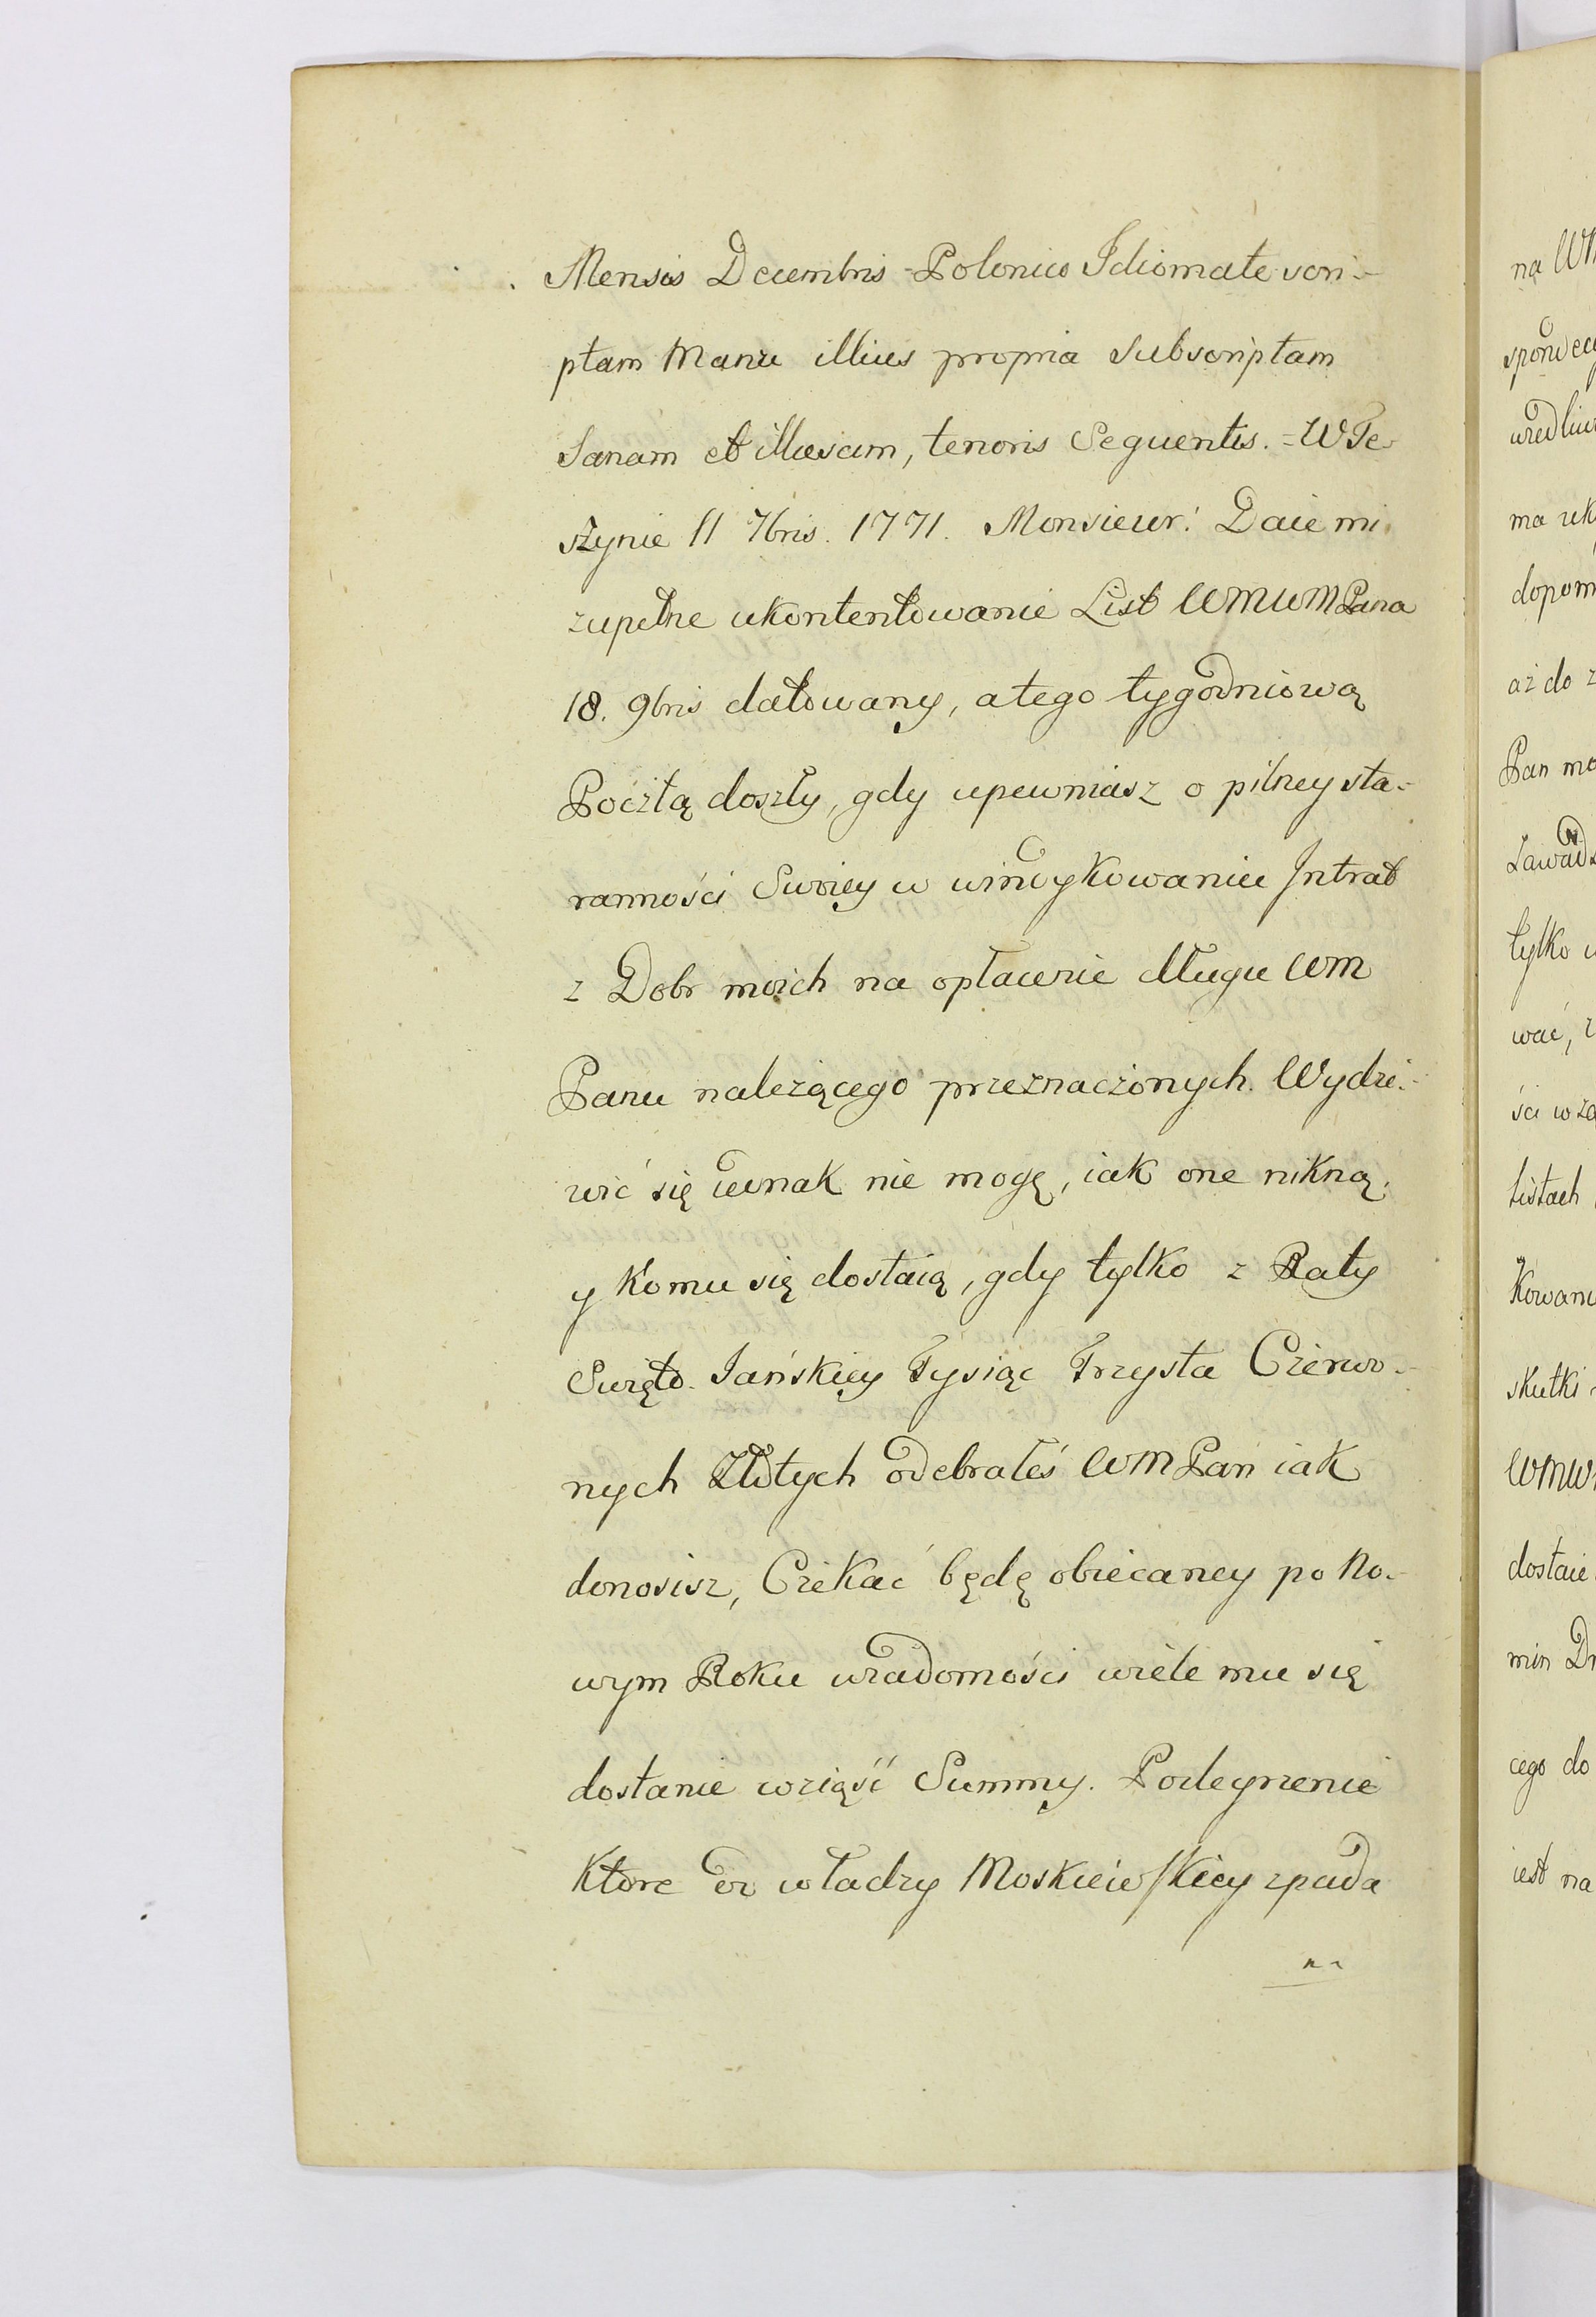 Mensis Decembris Polonico Idiomate scri-
ptam Manu illius propria Subscriptam
Sanam et illaesam, tenoris Sequentis. = W Te-
szynie 11 Xbris. 1771. Monsieur! Daie mi
zupełne ukontentowanie List WMWM Pana
18. 9bris datowany, a tego tygodniową
Pocztą doszły, gdy upewniasz o pilney sta-
ranności Swoiey w windykowaniu Intrat
z Dobr moich na opłacenie długu WM
Panu należącego przeznaczonych. Wydzi-
wić się iednak nie mogę, iak one nikną,
y komu się dostaią, gdy tylko z Raty
Święto-Jańskiey Tysiąc Trzysta Czerwo-
nych Złotych odebrałeś WM Pan iak
donosisz, Czekać będę obiecaney po No-
wym Roku wiadomości wiele mu się
dostanie wziąść Summy. Podeyrzenie
Ktore od władzy Moskiewskiey spada
na
na WM
ma uk
dopom
aż do z
Pan mo
tylko w
wać, z
ści w za
Listach
kowani
skutki
WMW
dostaie
min Dn
cego do
iest na